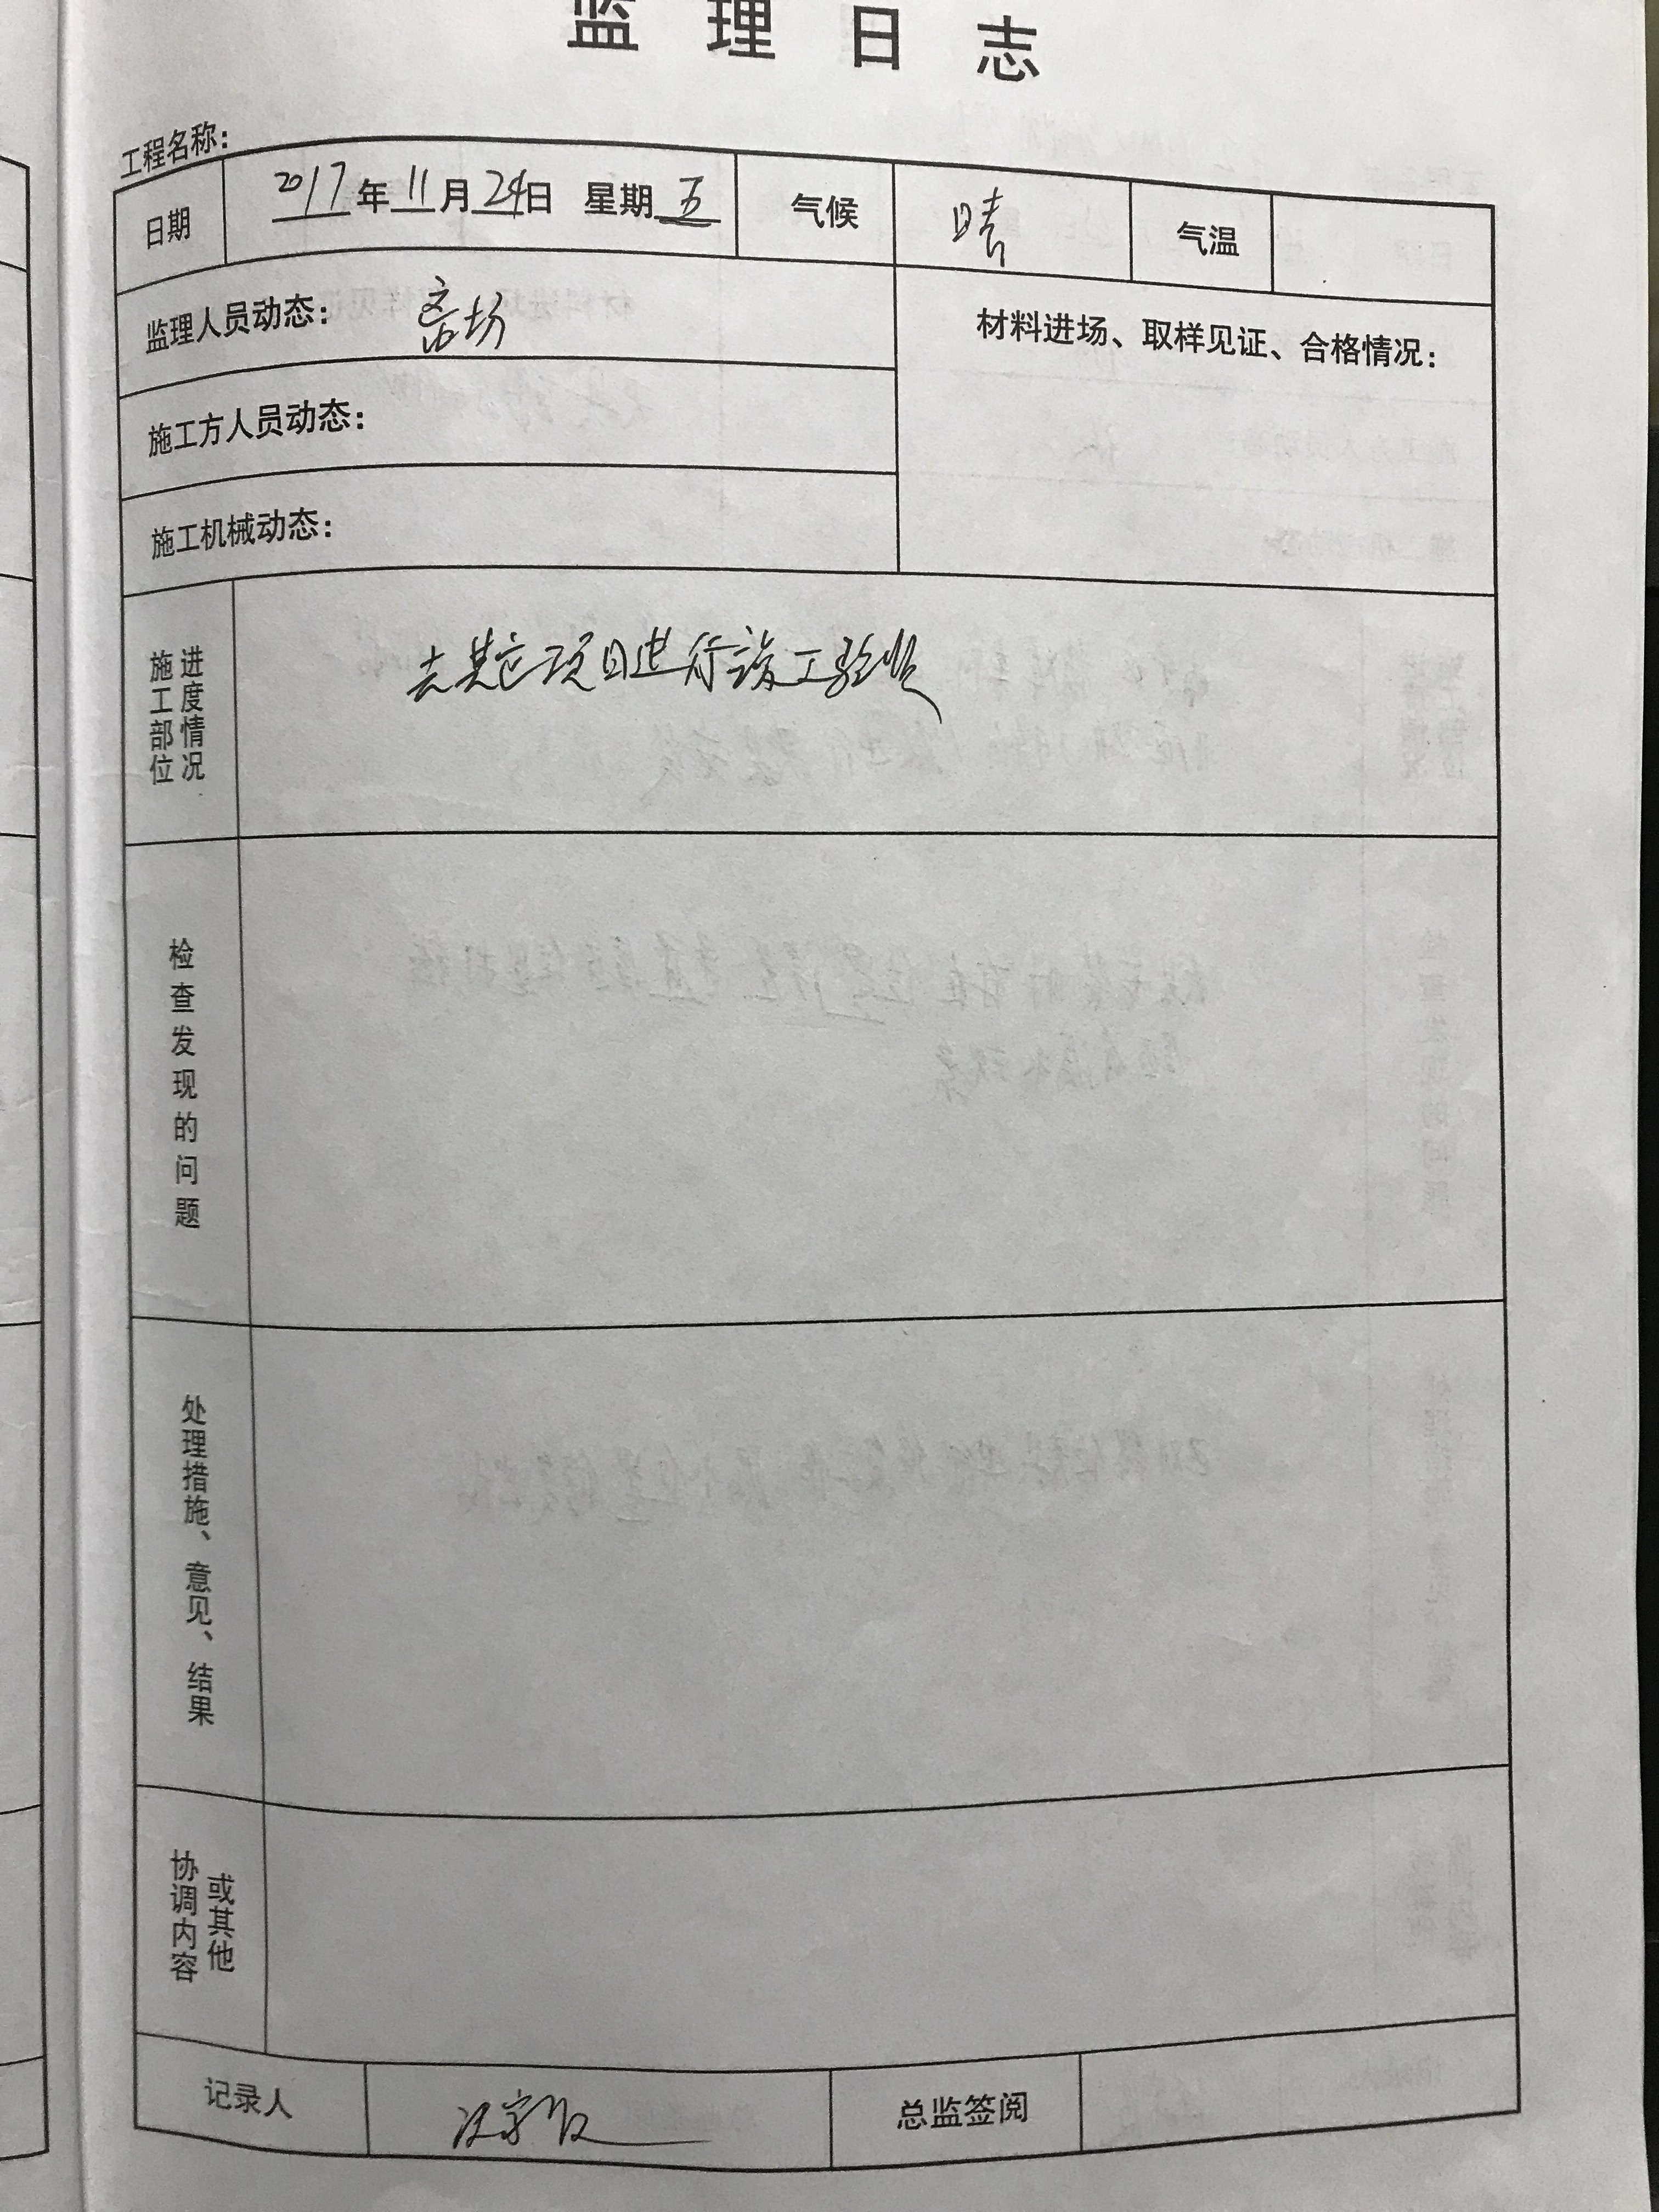 监理日志
工程名称:
日期 2017年11月24日 星期五 气候 晴 气温
监理人员动态: 离场
材料进场、取样见证、合格情况:
施工方人员动态:
施工机械动态:
施工部位
进度情况
去其它项目进行竣工验收
检查发现的问题
处理措施、意见、结果
协调内容
或其他
记录人
总监签阅